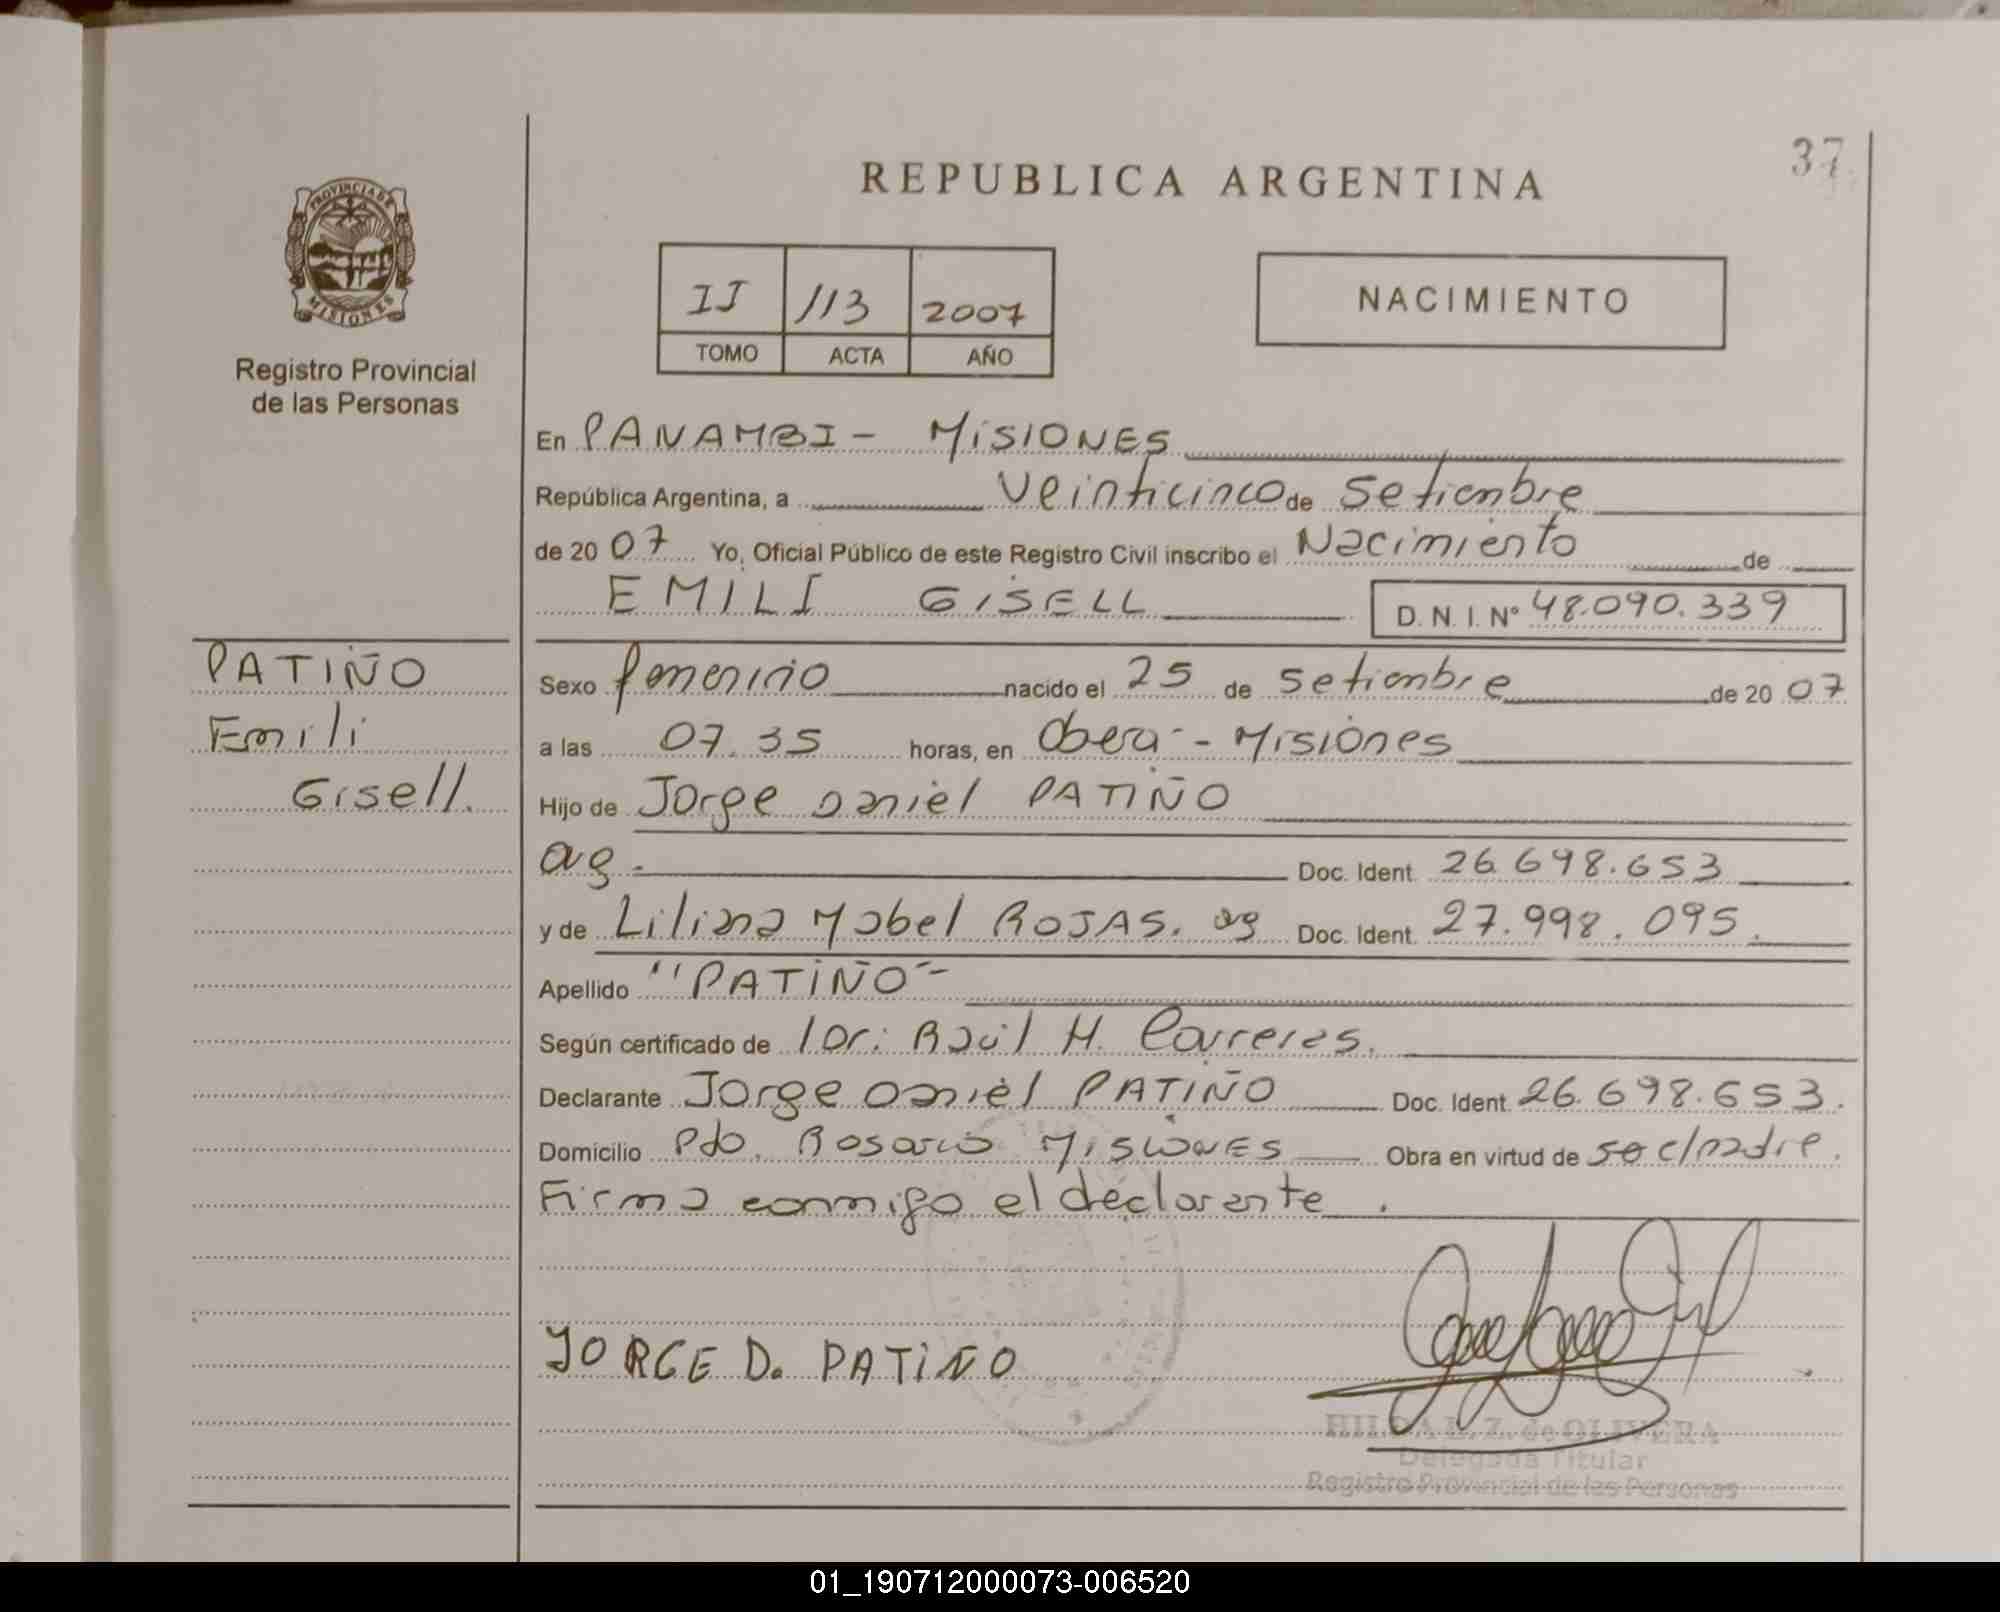 37
REPUBLICA ARGENTINA
PROVINCIA DE
MISIONES
II 113 2007
TOMO ACTA AÑO
NACIMIENTO
Registro Provincial
de las Personas
En PANAMBI - MISIONES
República Argentina, a veinticinco de Setiembre
de 20 07 Yo, Oficial Público de este Registro Civil inscribo el Nacimiento de
EMILI GISELL D. N. I. Nº 48.090.339
PATIÑO
Emili
Gisell.
Sexo femenino nacido el 25 de Setiembre de 20 07
a las 07.35 horas, en Oberá - Misiones
Hijo de Jorge Daniel PATIÑO
arg. Doc. Ident. 26.698.653
y de Liliana Mabel ROJAS. arg Doc. Ident. 27.998.095.
Apellido "PATIÑO"-
Según certificado de Dr: Raúl H. Carreras.
Declarante Jorge Daniel PATIÑO Doc. Ident. 26.698.653.
Domicilio Pdo. Rosario MISIONES Obra en virtud de ser c/padre.
Firma conmigo el declarante.
JORGE D. PATIÑO
HILDA L. Z. de OLIVERA
Delegada Titular
Registro Provincial de las Personas
01_190712000073-006520